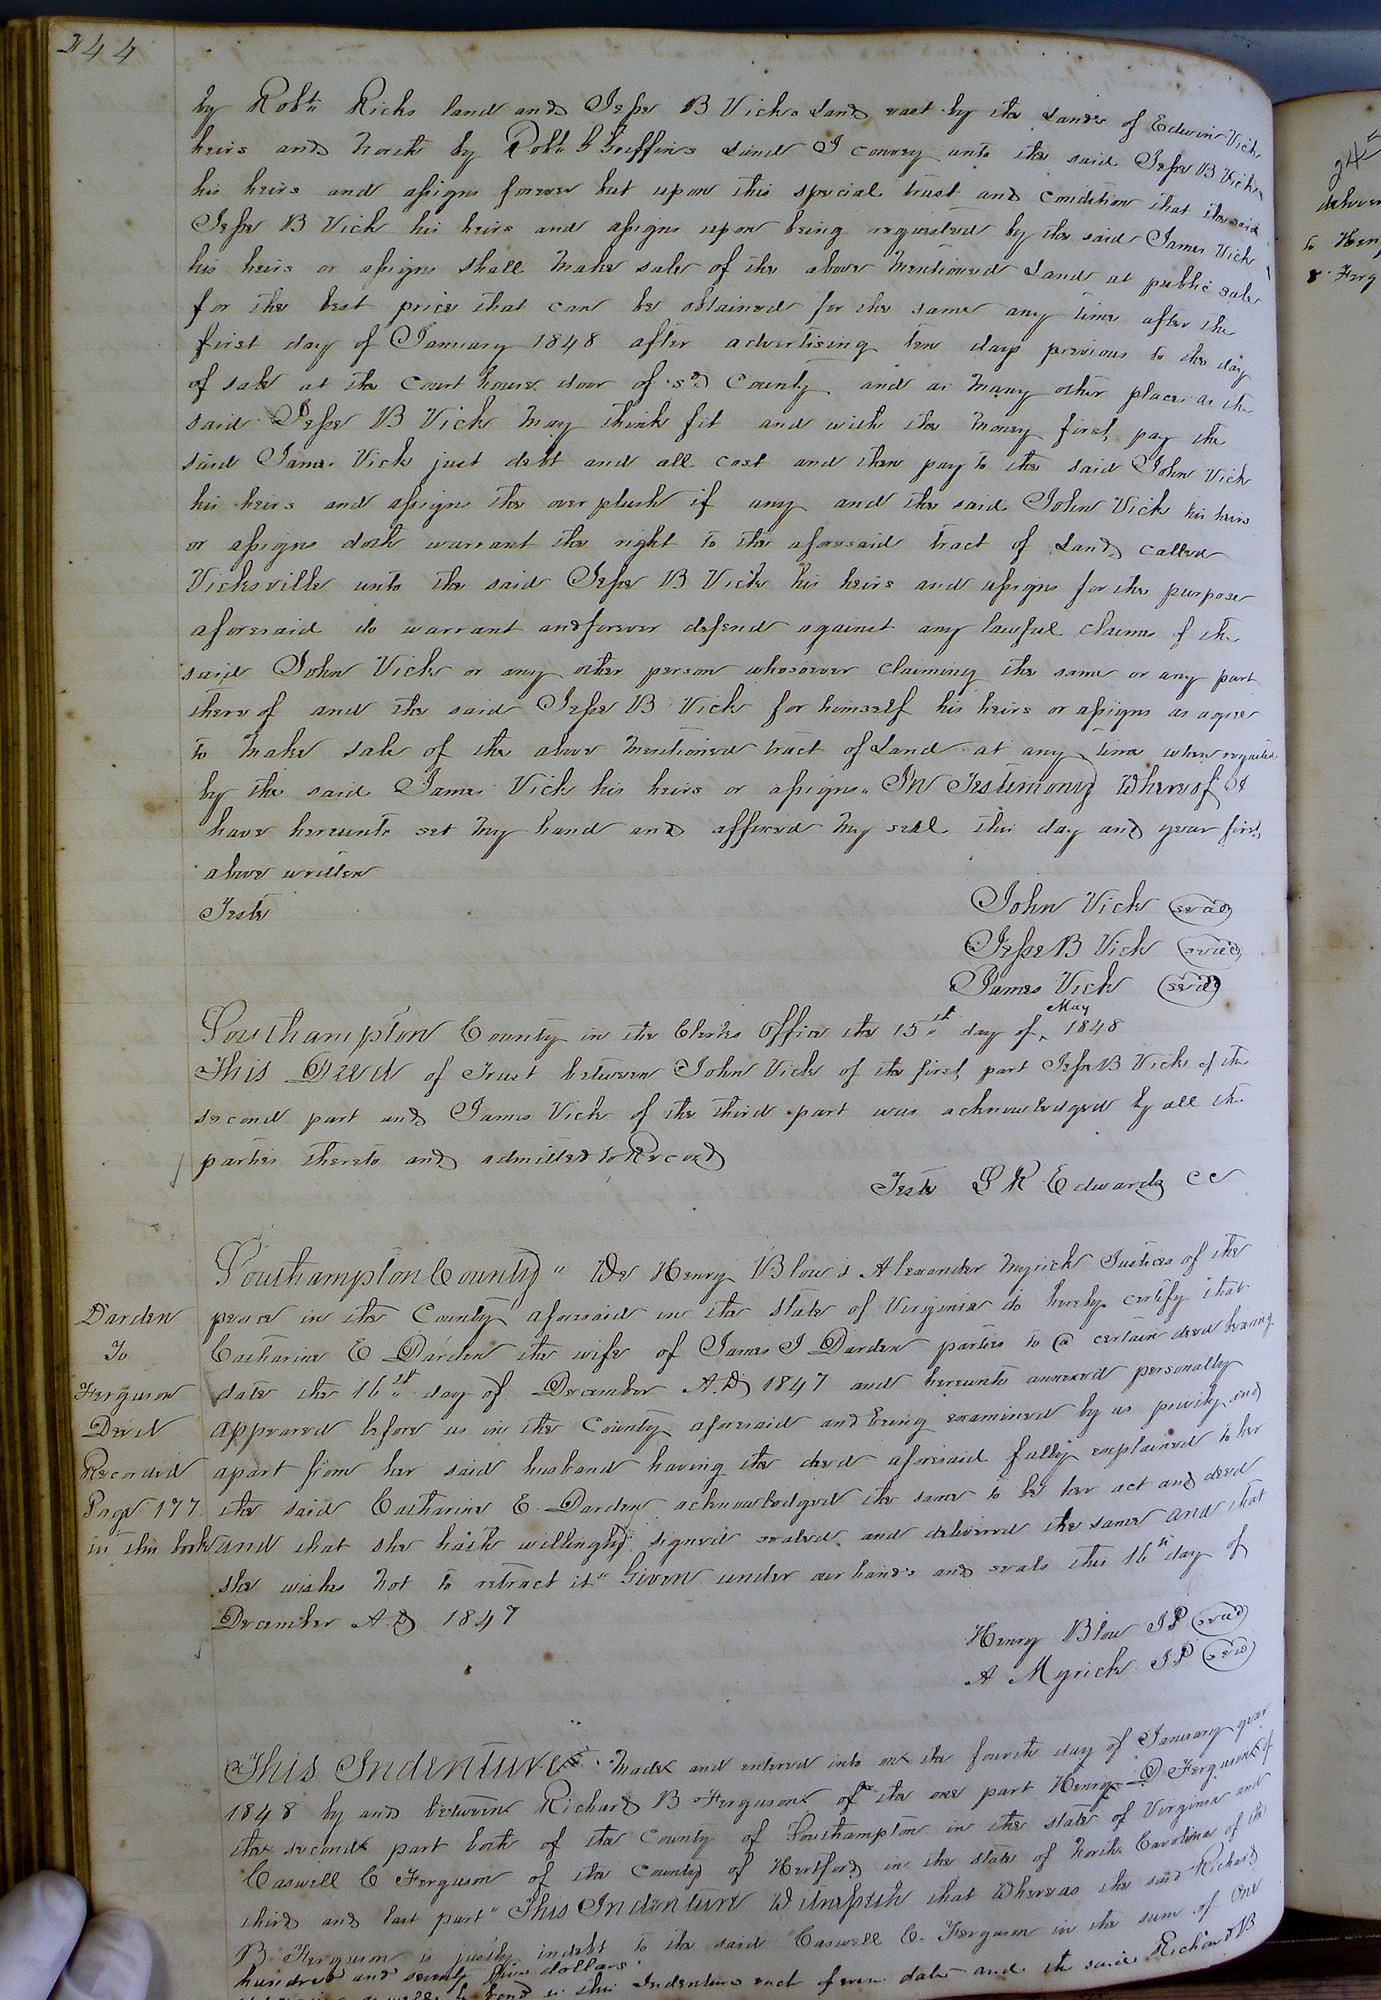 244
by Robt Ricks land and Jesse B Vicks Land east by the Lands of Edwin Vick
heirs and North by Robt G Griffins Land I convey unto the said Jesse B Vick
his heirs and assigns forever but upon this special trust and condition that the said
Jesse B Vick his heirs and assigns upon being requested by the said James Vick
his heirs or assigns shall make sale of the above mentioned Land at public sale
for the best price that can be obtained for the same any time after the
first day of January 1848 after advertising ten days previous to the day
of sale at the Court house door of sd County and as many other places as the
said Jesse B Vick may think fit and with the money first pay the
said James Vick just debt and all cost and then pay to the said John Vick
his heirs and assigns the over plush if any and the said John Vick his heirs
or assigns doth warrant the right to the aforesaid tract of Land called
Vicksville unto the said Jesse B Vick his heirs and assigns for the purpose
aforesaid do warrant and forever defend against any lawful claims of the
said John Vick or any other person whosoever claiming the same or any part
there of and the said Jesse B Vick for himself his heirs or assigns as agree
to make sale of the above mentioned tract of Land at any time when requested
by the said James Vick his heirs or assigns. In Testimony Whereof I
have hereunto set my hand and affixed my seal this day and year first
above written
Teste
John Vick seal
Jesse B Vick seal
James Vick seal
Southampton County in the Clerks Office the 15th day of May 1848
This Deed of Trust between John Vick of the first part Jesse B Vick of the
second part and James Vick of the third part was acknowledged by all the
parties thereto and admitted to Record
Teste L R Edwards CC
Darden
To
Ferguson
Deed
Recorded
Page 177
in this book
Southampton County " We Henry Blow & Alexander Myrick Justices of the
peace in the County aforesaid in the state of Virginia do hereby certify that
Catharine E Darden the wife of James J Darden parties to a certain deed bearing
date the 16th day of December A.D 1847 and hereunto annexed personally
appeared before us in the County aforesaid and being examined by us privily and
apart from her said husband having the deed aforesaid fully explained to her
the said Catharine E. Darden acknowledged the same to be her act and deed
and that she hath willingly signed sealed and delivered the same and that
she wishes not to retract it " Given under our hands and seals this 16th day of
December A.D 1847
Henry Blow JP seal
A Myrick JP seal
This Indenture made and entered into on the fourth day of January year
1848 by and between Richard B Ferguson of the one part Henry D Ferguson of
the second part both of the County of Southampton in the state of Virginia and
Caswell C Ferguson of the County of Hertford in the state of North Carolina of the
third and last part " This Indenture Witnesseth that Whereas the said Richard
B Ferguson is justly indebt to the said Caswell C. Ferguson in the sum of One
hundred and seventy dollars
bond in this Indenture each of even date and the said Richard B
deliver
to Hen
& Ferg